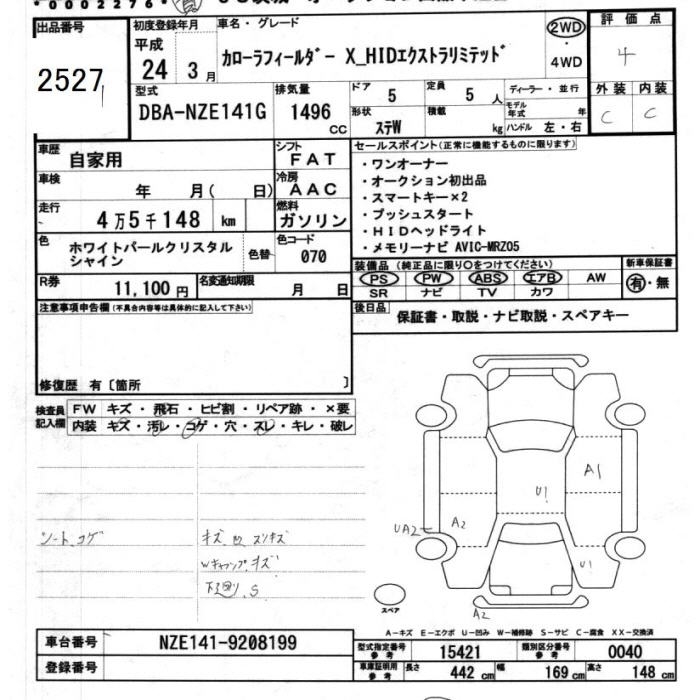 *0002276*
出品番号
2527
初度登録年月
平成
24年3月
車名・グレード
カローラフィールダー X_HIDエクストラリミテッド
2WD
・
4WD
評価点
4
外装 内装
C C
型式
DBA-NZE141G
排気量
1496
CC
ドア
5
定員
5 人
ディーラー・並行
形状
ステW
積載
kg
モデル年式
年
ハンドル 左・右
車歴
自家用
シフト
FAT
車検
年 月( 日)
冷房
AAC
走行
4万5千148 km
燃料
ガソリン
色
ホワイトパールクリスタル
シャイン
色替
色コード
070
R券
11,100 円
名変通知期限
月 日
セールスポイント(正常に機能するものに限ります)
・ワンオーナー
・オークション初出品
・スマートキー×2
・プッシュスタート
・HIDヘッドライト
・メモリーナビ AVIC-MRZ05
装備品 (純正品に限り○をつけてください)
PS PW ABS エアB AW
SR ナビ TV カワ
新車保証書
有・無
後日品
保証書・取説・ナビ取説・スペアキー
注意事項申告欄(不具合内容等は具体的に記入して下さい)
修復歴 有〔箇所 〕
検査員
記入欄
FW キズ・飛石・ヒビ割・リペア跡・×要
内装 キズ・汚レ・コゲ・穴・スレ・キレ・破レ
シート、コゲ
キズ 凹 スリキズ
Wキャップ キズ
下廻り.S
A1
U1
UA2
A2
U1
A2
スペア
A-キズ E-エクボ U-凹み W-補修跡 S-サビ C-腐食 XX-交換済
車台番号
NZE141-9208199
登録番号
型式指定番号
参考
15421
類別区分番号
参考
0040
車庫証明用
参考
長さ 442 cm 幅 169 cm 高さ 148 cm